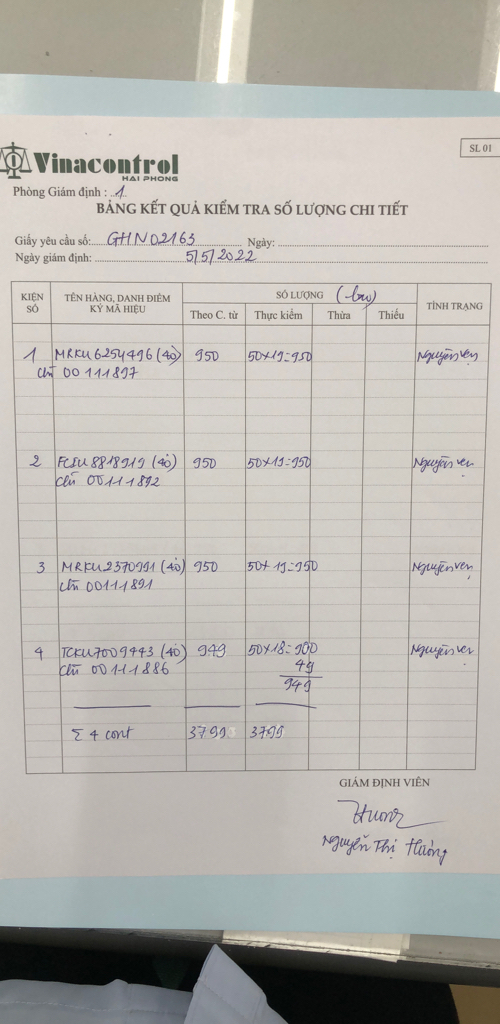 SL 01
Vinacontrol
HAI PHONG
Phòng Giám định : 1
BẢNG KẾT QUẢ KIỂM TRA SỐ LƯỢNG CHI TIẾT
Giấy yêu cầu số: GHN02163 Ngày:
Ngày giám định: 5/5/2022
KIỆN SỐ TÊN HÀNG, DANH ĐIỂM KÝ MÃ HIỆU SỐ LƯỢNG (bao) TÌNH TRẠNG
Theo C. từ Thực kiểm Thừa Thiếu
1 MRKU6254496 (40) 950 50x19=950 Nguyên vẹn
chì 00111897
2 FCIU8818919 (40) 950 50x19=950 Nguyên vẹn
chì 00111892
3 MRKU2370991 (40) 950 50x19=950 Nguyên vẹn
chì 00111891
4 TCKU7009443 (40) 949 50x18=900 Nguyên vẹn
chì 00111886 49
949
Σ 4 cont 3799 3799
GIÁM ĐỊNH VIÊN
Hương
Nguyễn Thị Hương